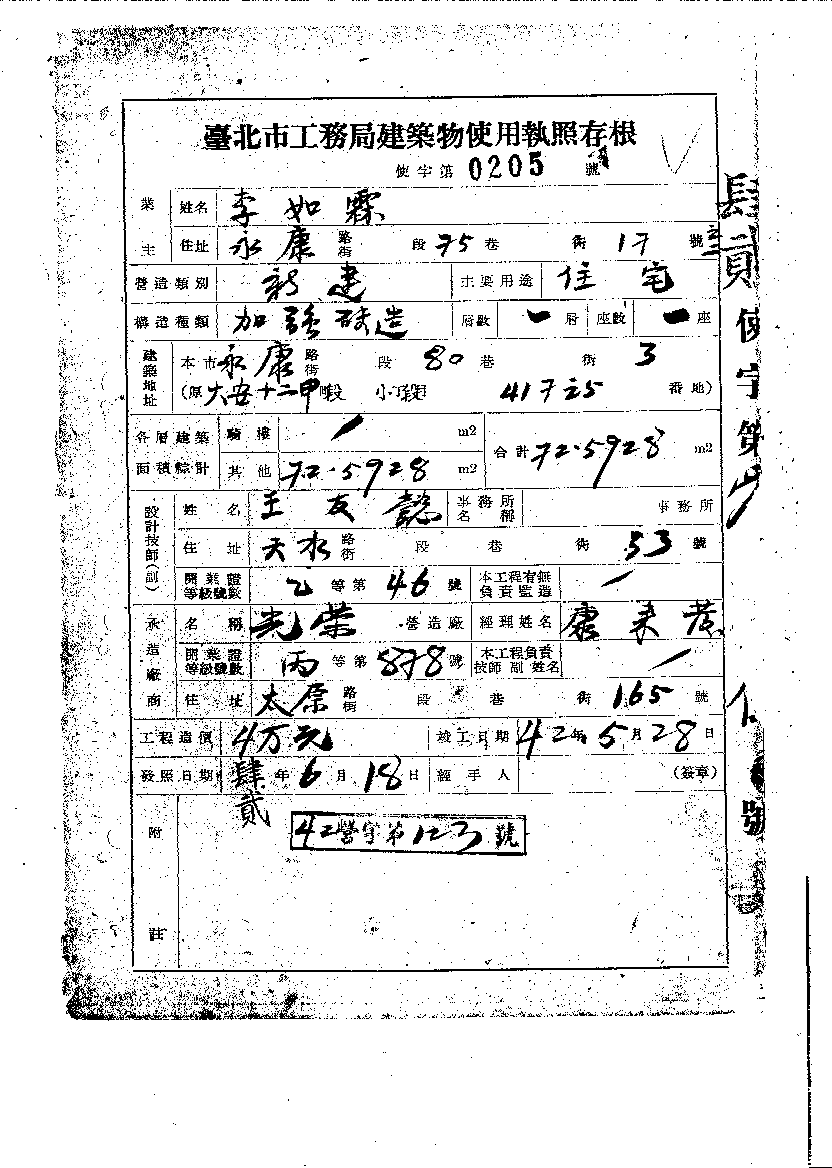 臺北市工務局建築物使用執照存根
使字第 0205 號
業主 姓名 李如霖
住址 永康 路街 段 75 巷 街 17 號
營造類別 新建 主要用途 住宅
構造種類 加強磚造 層數 一 層 座數 一 座
建築地址 本市永康 路街 段 80 巷 街 3
(原大安十二甲 段 小段 417-25 番地)
各層建築面積總計 騎樓 / m2 合計 72.5928 m2
其他 72.5928 m2
設計技師(副) 姓名 王友懿 事務所名稱 事務所
住址 天水 路街 段 巷 街 53 號
開業證等級號數 乙 等第 46 號 本工程有無負責監造 /
承造廠商 名稱 光榮 營造廠 經理姓名 康来
開業證等級號數 丙 等第 878 號 本工程負責技師副姓名 /
住址 太原 路街 段 巷 街 165 號
工程造價 4万元 竣工日期 42年5月28日
發照日期 肆貳年6月18日 經手人 (簽章)
42營字第123號
附註
肆貳使字第
號